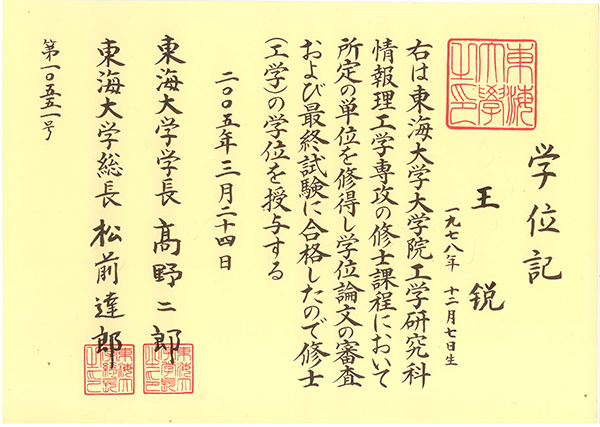 東海
大學
之印
学位記
王 锐
一九七八年 十二月七日生
右は東海大学大学院工学研究科
情報理工学専攻の修士課程において
所定の単位を修得し学位論文の審査
および最終試験に合格したので修士
(工学)の学位を授与する
二〇〇五年三月二十四日
東海大学学長 髙野二郎
東海大学総長 松前達郎
第一〇五五一号